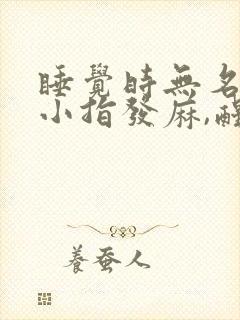 睡覺時無名
小指發麻,醒
養蠶人